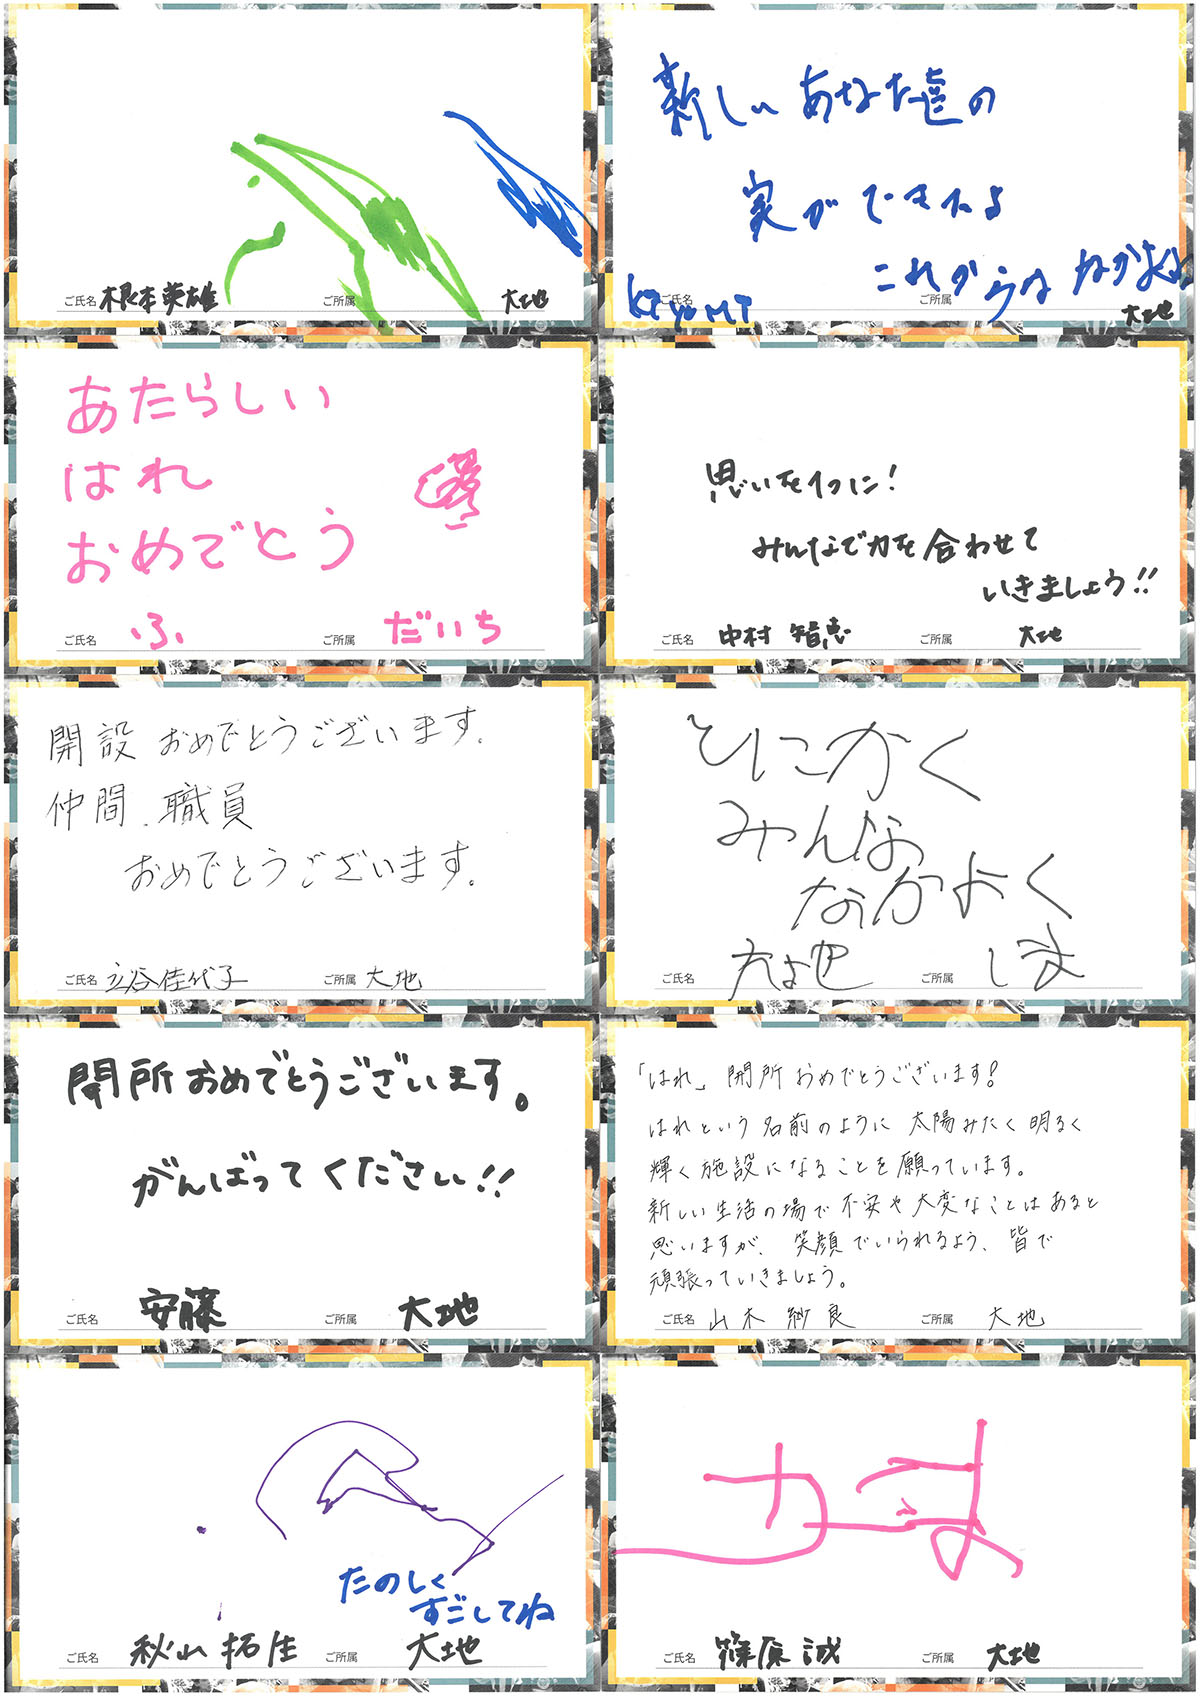 ご氏名 根本英雄 ご所属 大地
新しい あなた達の
家ができたよ
これからうな なかよ
ご氏名 KIYOMI ご所属 大地
あたらしい
はれ
おめでとう
ご氏名 ふ ご所属 だいち
思いを1つに!
みんなで力を合わせて
いきましょう!!
ご氏名 中村 智恵 ご所属 大地
開設 おめでとうございます。
仲間、職員
おめでとうございます。
ご氏名 立谷佳代子 ご所属 大地
とにかく
みんな
なかよく
ご氏名 ご所属 しま
開所おめでとうございます。
がんばってください!!
ご氏名 安藤 ご所属 大地
「はれ」開所おめでとうございます!
はれという名前のように 太陽みたく明るく
輝く施設になることを願っています。
新しい生活の場で不安や大変なことはあると
思いますが、笑顔でいられるよう、皆で
頑張っていきましょう。
ご氏名 山木紗良 ご所属 大地
たのしく
すごしてね
ご氏名 秋山拓生 ご所属 大地
カま
ご氏名 篠原 誠 ご所属 大地